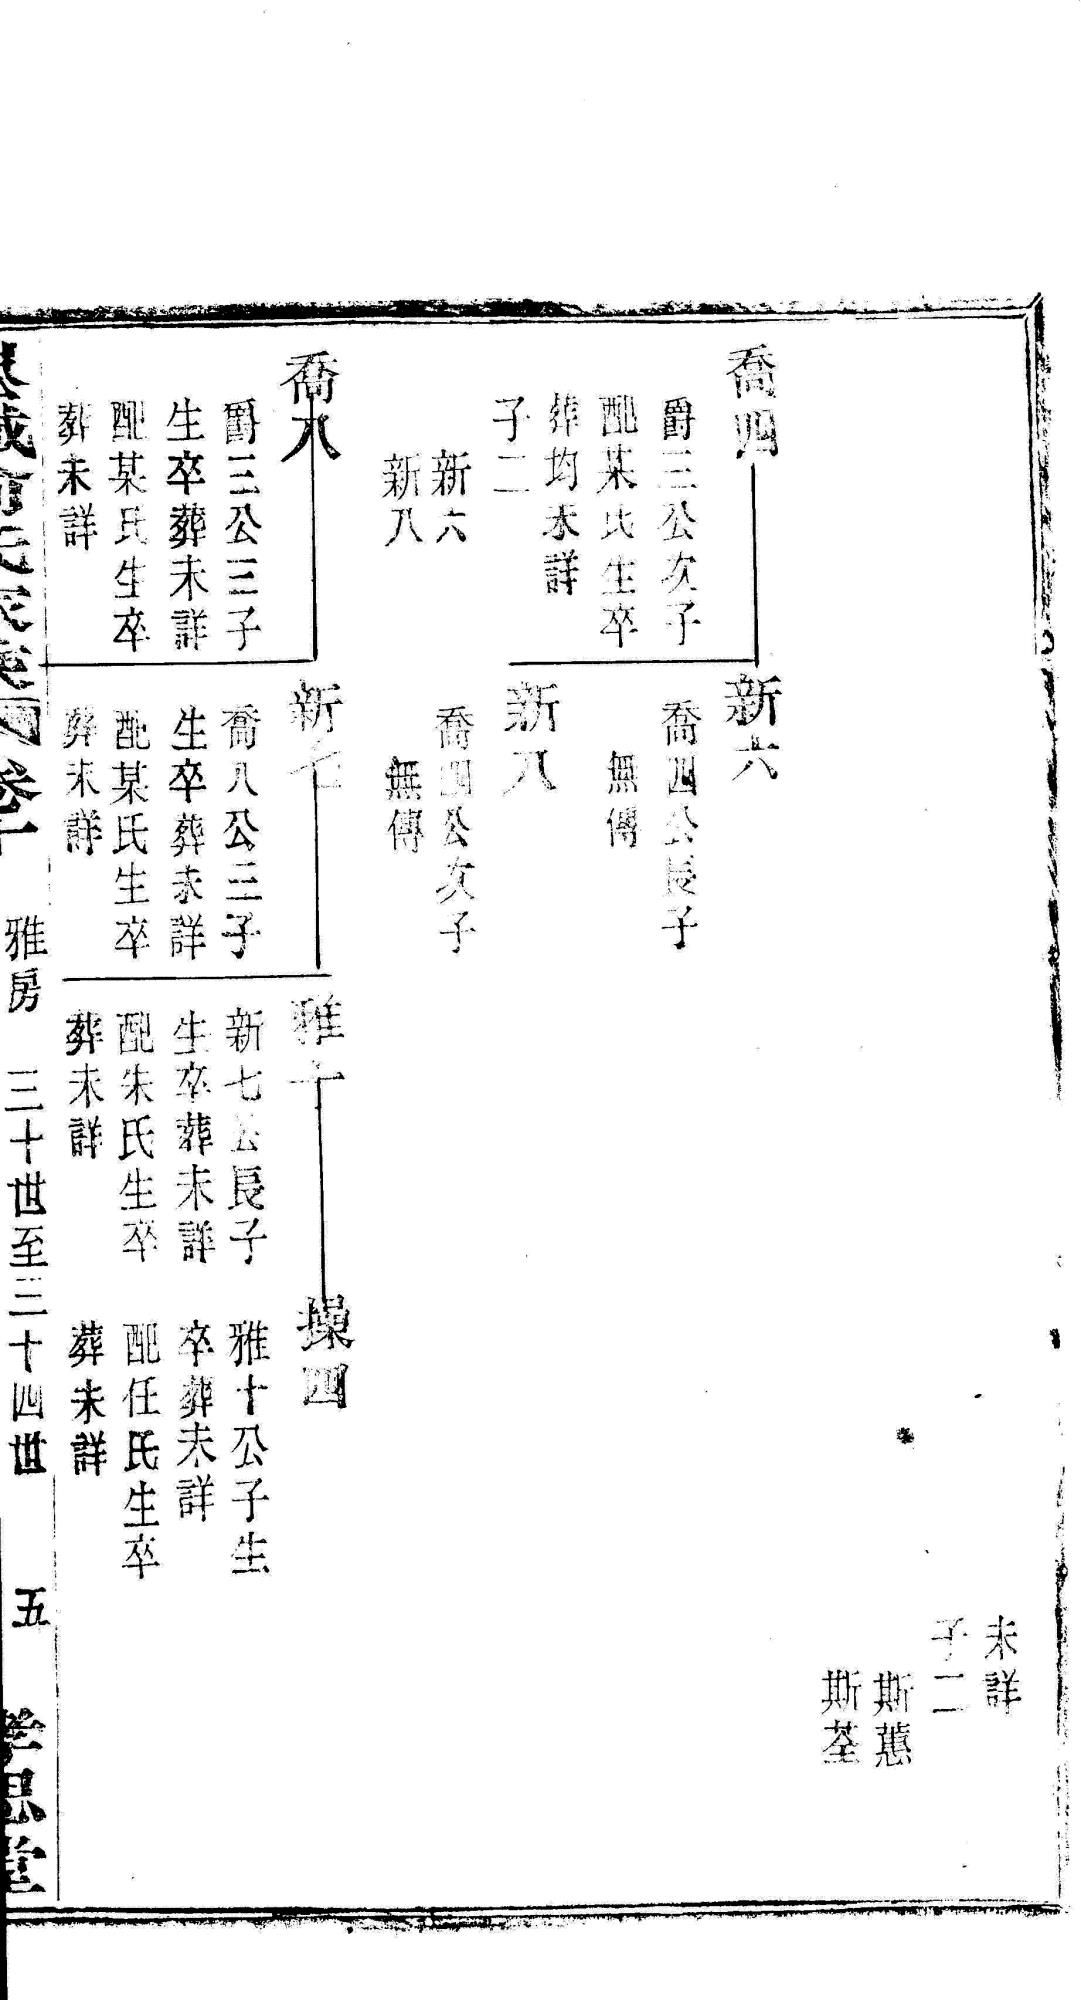 未詳
子二
斯蕙
斯荃
喬四
爵三公次子
配某氏生卒
葬均未詳
子二
新六
新八
新六
喬四公長子
無傳
新八
喬四公次子
無傳
喬八
爵三公三子
生卒葬未詳
配某氏生卒
葬未詳
新七
喬八公三子
生卒葬未詳
配某氏生卒
葬未詳
雅十
新七公長子
生卒葬未詳
配朱氏生卒
葬未詳
操四
雅十公子生
卒葬未詳
配任氏生卒
葬未詳
氏家乘 卷十
雅房 三十世至三十四世
五
孝思堂